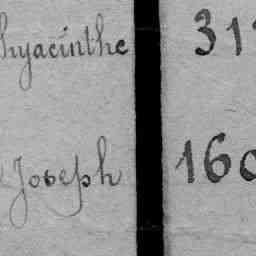 hyacinthe 31
Joseph 160